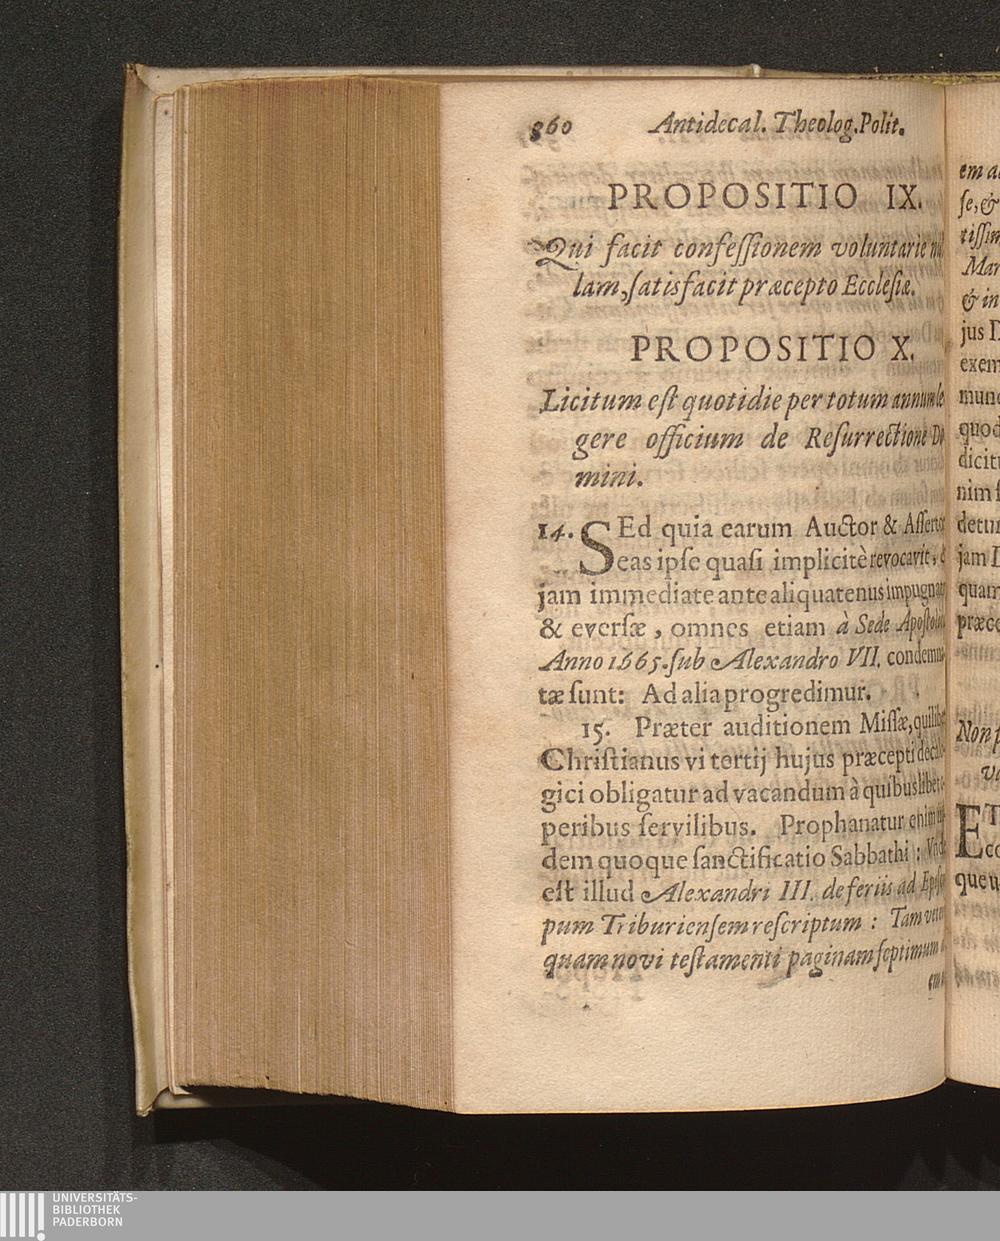 360 Antidecal. Theolog. Polit.
PROPOSITIO IX.
Qui facit confeſſionem voluntarie
lam, ſatisfacit præcepto Eccleſiæ.
PROPOSITIO X.
Licitum eſt quotidie per totum annum le
gere officium de Reſurrectione Do
mini.
14. SEd quia earum Auctor & Aſſertor
eas ipſe quaſi implicitè revocavit,
jam immediate ante aliquatenus impugnatæ
& everſæ, omnes etiam à Sede Apoſtolica
Anno 1665. ſub Alexandro VII. condemna
tæ ſunt: Ad alia progredimur.
15. Præter auditionem Miſſæ, quilibet
Chriſtianus vi tertij hujus præcepti decalo
gici obligatur ad vacandum à quibuslibet o
peribus ſervilibus. Prophanatur enim
dem quoque ſanctificatio Sabbathi: Unde
eſt illud Alexandri III. de feriis ad Epiſco
pum Triburienſem reſcriptum: Tam veteris
quam novi teſtamenti paginam ſeptimum
em
ſe, &
tiſſim
Mar
& in
jus
exem
mund
quod
dicit
nim
detur
jam
quam
præce
Non p
va
ET
co
que u
UNIVERSITÄTS-
BIBLIOTHEK
PADERBORN